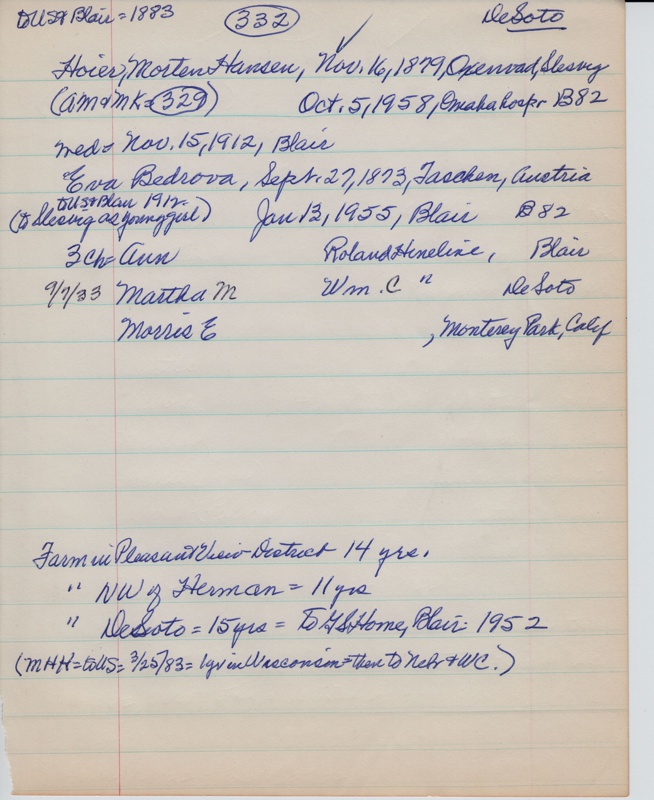 to US & Blair = 1883 332 DeSoto
Hoier, Morten Hansen, Nov. 16, 1879, Openvad, Slesvig
(AM & MK = 329) Oct. 5, 1958, Omaha hosp B82
wed = Nov. 15, 1912, Blair
Eva Bedrova, Sept. 27, 1873, Taschen, Austria
to US & Blair 1912
(to Slesvig as young girl) Jan 13, 1955, Blair B82
3 ch = Ann Roland Hineline, Blair
9/7/33 Martha M Wm. C " DeSoto
Morris E , Monterey Park, Calif
Farm in Pleasant View District 14 yrs.
" NW of Herman = 11 yrs
" DeSoto = 15 yrs = to GS Home, Blair = 1952
(MHH = to US = 3/25/83 = 1 yr in Wisconsin = then to Nebr & WC.)